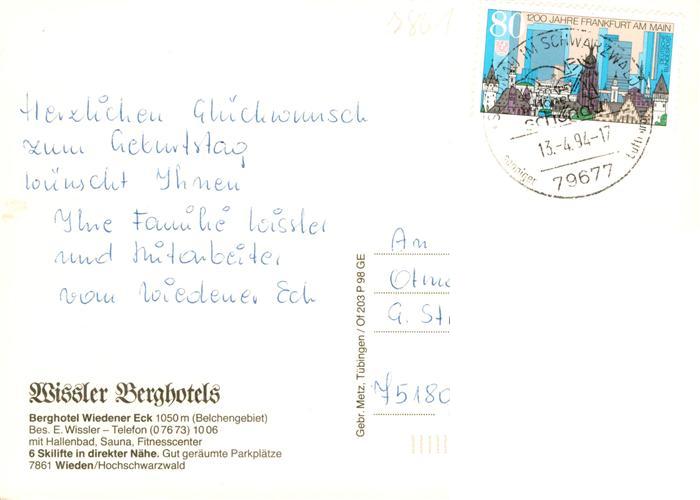 80
1200 JAHRE FRANKFURT AM MAIN
DEUTSCHE BUNDESPOST
IM SCHWARZWALD
13.-4.94-17
79677
Herzlichen Glückwunsch
zum Geburtstag
wünscht Ihnen
Ihre Familie Wissler
und Mitarbeiter
vom Wiedener Eck
An
G. St
75180
Gebr. Metz, Tübingen / Of 203 P 98 GE
Wissler Berghotels
Berghotel Wiedener Eck 1050 m (Belchengebiet)
Bes. E. Wissler – Telefon (0 76 73) 10 06
mit Hallenbad, Sauna, Fitnesscenter
6 Skilifte in direkter Nähe. Gut geräumte Parkplätze
7861 Wieden/Hochschwarzwald